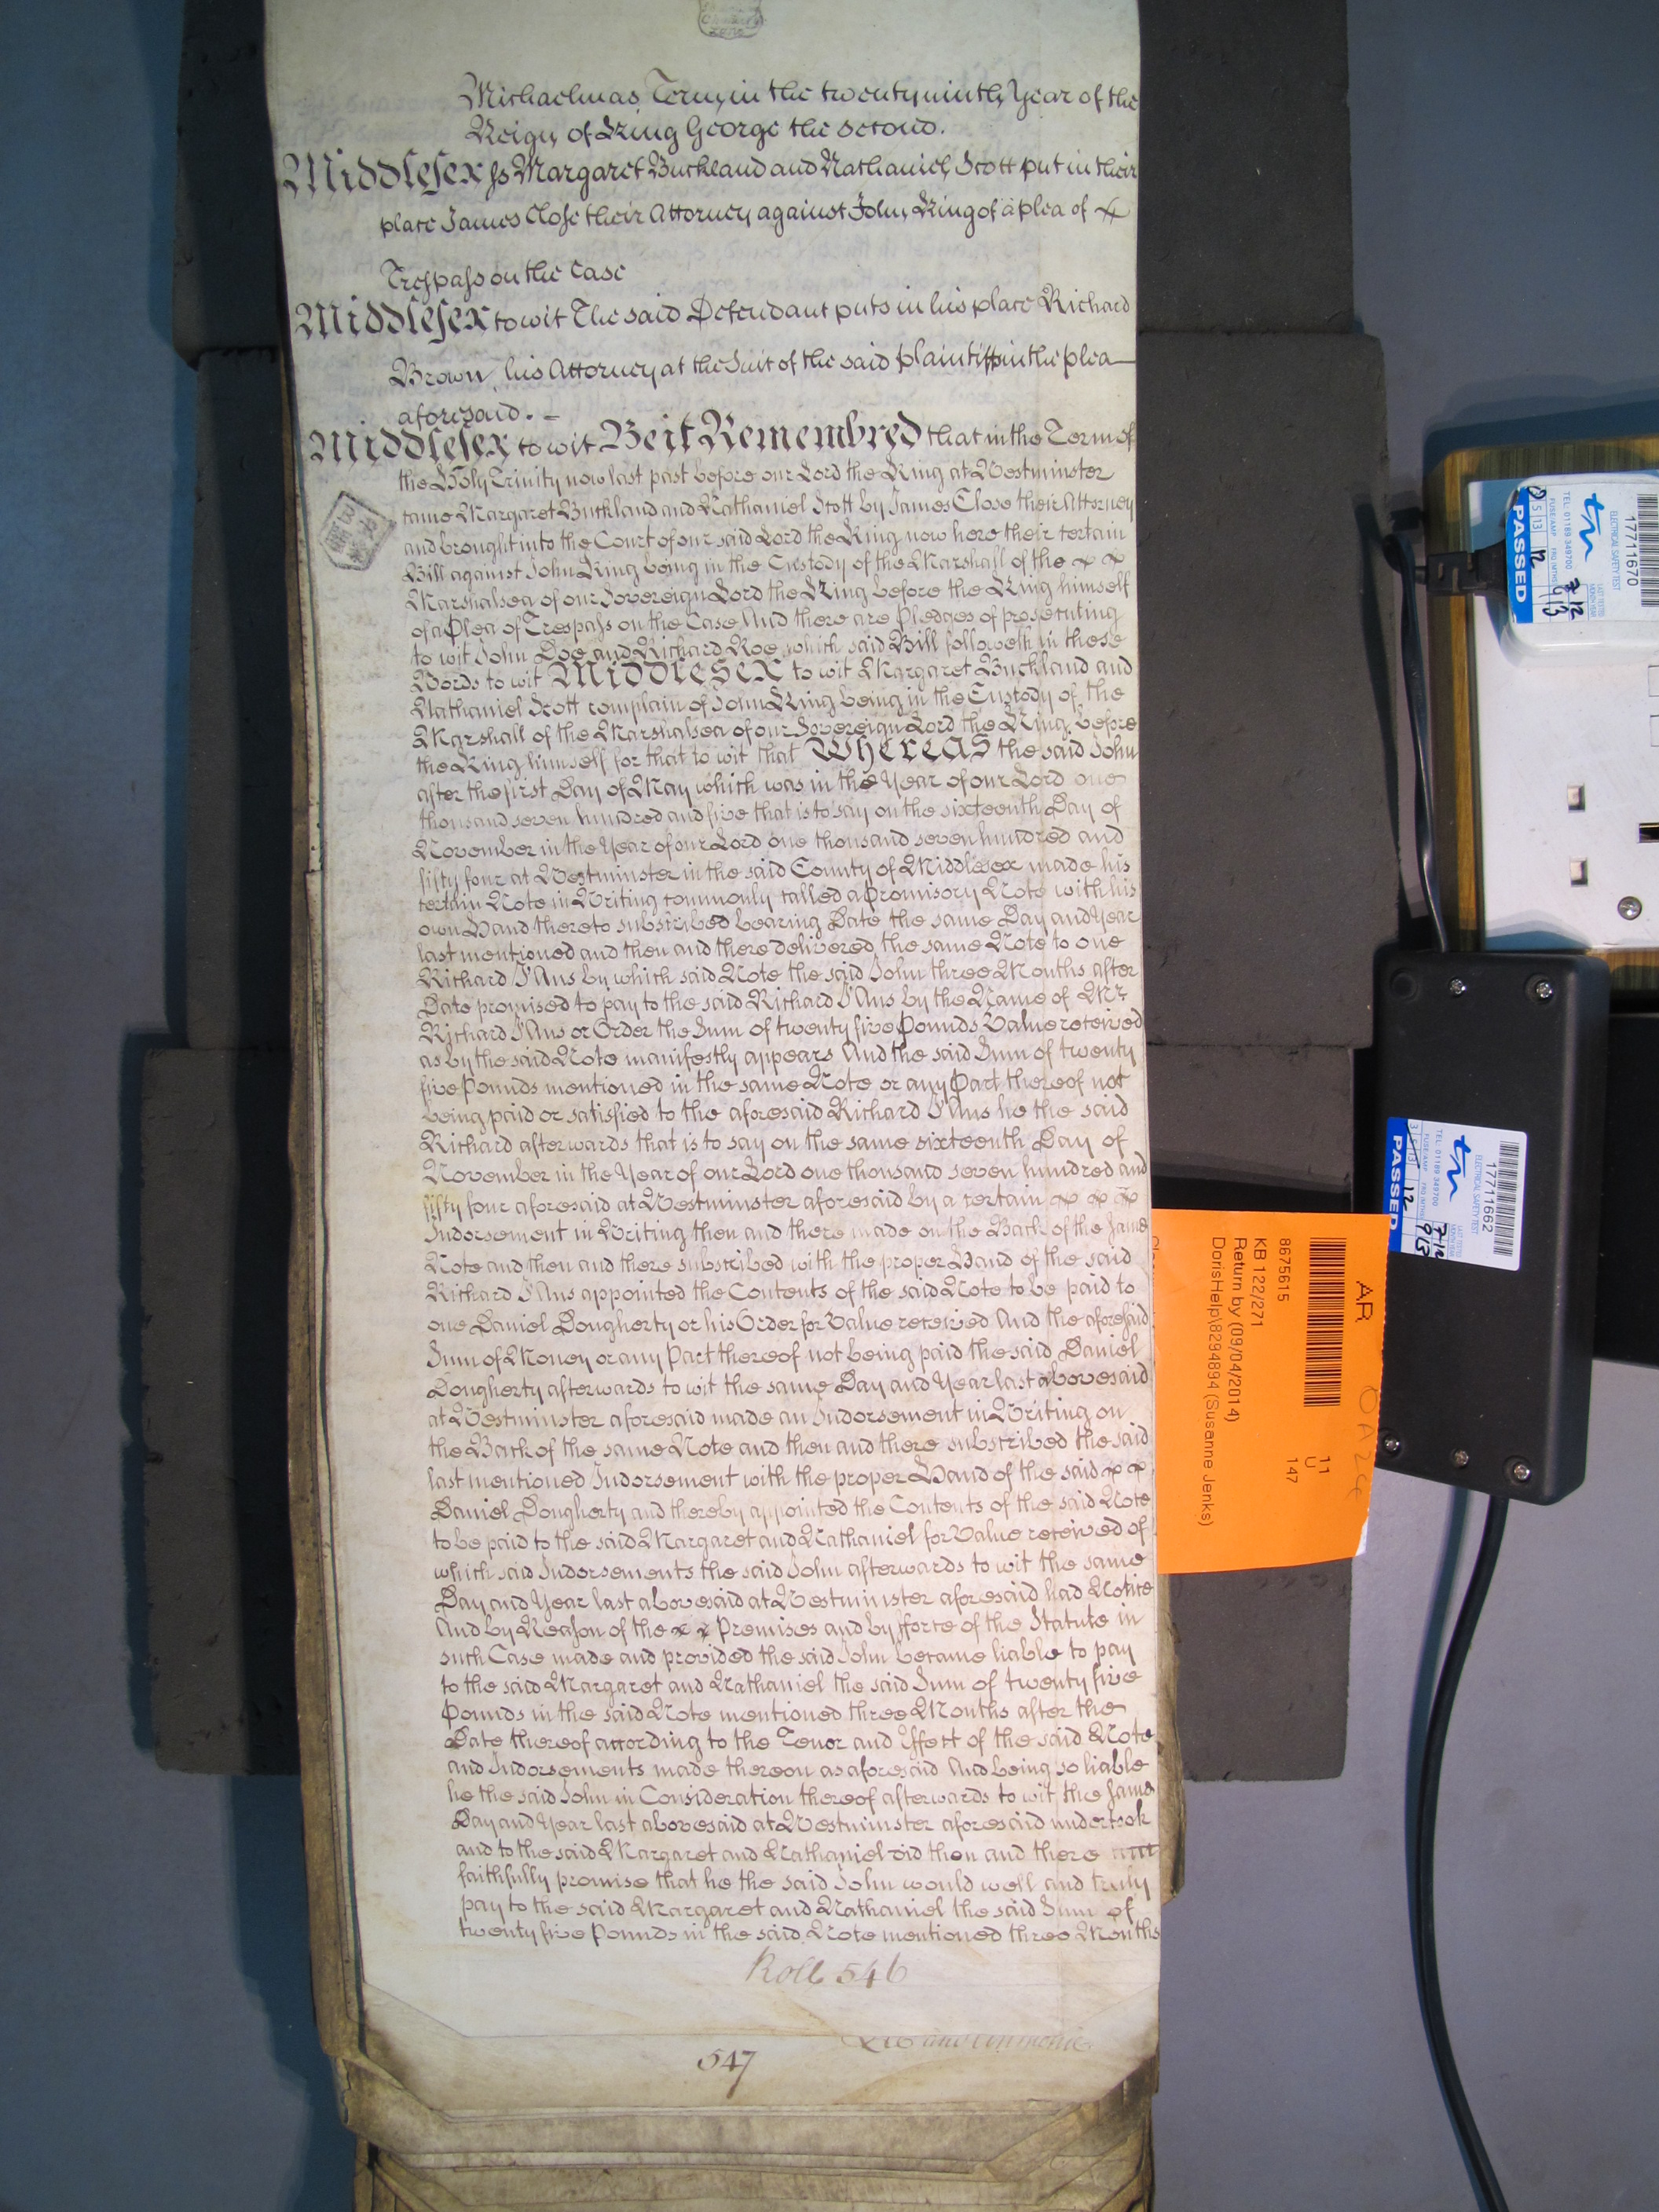 Michaelmas Term in the twenty ninth Year of the
Reign of King George the second.
Middlesex ss Margaret Buckland and Nathaniel Scott put in their
place James Close their Attorney against John King of a plea of
Trespass on the Case
Middlesex to wit The said Defendant puts in his place Richard
Brown his Attorney at the Suit of the said plaintiffs in the plea
aforesaid. -
Middlesex to wit Be it Remembred that in the Term of
the Holy Trinity now last past before our Lord the King at Westminster
came Margaret Buckland and Nathaniel Scott by James Close their Attorney
and brought into the Court of our said Lord the King now here their certain
Bill against John King being in the Custody of the Marshall of the
Marshalsea of our Sovereign Lord the King before the King himself
of a Plea of Trespass on the Case And there are Pledges of prosecuting
to wit John Doe and Richard Roe which said Bill followeth in these
Words to wit Middlesex to wit Margaret Buckland and
Nathaniel Scott complain of John King being in the Custody of the
Marshall of the Marshalsea of our Sovereign Lord the King before
the King himself for that to wit that Whereas the said John
after the first Day of May which was in the Year of our Lord one
thousand seven hundred and five that is to say on the sixteenth Day of
November in the Year of our Lord one thousand seven hundred and
fifty four at Westminster in the said County of Middlesex made his
certain Note in Writing commonly called a Promisory Note with his
own Hand thereto subscribed bearing Date the same Day and Year
last mentioned and then and there delivered the same Note to one
Richard I'Ans by which said Note the said John three Months after
Date promised to pay to the said Richard I'Ans by the Name of Mr
Richard I'Ans or Order the Sum of twenty five Pounds Value received
as by the said Note manifestly appears And the said Sum of twenty
five Pounds mentioned in the same Note or any Part thereof not
being paid or satisfied to the aforesaid Richard I'Ans he the said
Richard afterwards that is to say on the same sixteenth Day of
November in the Year of our Lord one thousand seven hundred and
fifty four aforesaid at Westminster aforesaid by a certain
Indorsement in Writing then and there made on the Back of the same
Note and then and there subscribed with the proper Hand of the said
Richard I'Ans appointed the Contents of the said Note to be paid to
one Daniel Dougherty or his Order for Value received And the aforesaid
Sum of Money or any Part thereof not being paid the said Daniel
Dougherty afterwards to wit the same Day and Year last abovesaid
at Westminster aforesaid made an Indorsement in Writing on
the Back of the same Note and then and there subscribed the said
last mentioned Indorsement with the proper Hand of the said
Daniel Dougherty and thereby appointed the Contents of the said Note
to be paid to the said Margaret and Nathaniel for Value received of
which said Indorsements the said John afterwards to wit the same
Day and Year last abovesaid at Westminster aforesaid had Notice
And by Reason of the Premises and by fforce of the Statute in
such Case made and provided the said John became liable to pay
to the said Margaret and Nathaniel the said Sum of twenty five
Pounds in the said Note mentioned three Months after the
Date thereof according to the Tenor and Effect of the said Note
and Indorsements made thereon as aforesaid And being so liable
he the said John in Consideration thereof afterwards to wit the same
Day and Year last abovesaid at Westminster aforesaid undertook
and to the said Margaret and Nathaniel did then and there
faithfully promise that he the said John would well and truly
pay to the said Margaret and Nathaniel the said Sum of
twenty five Pounds in the said Note mentioned three Months
Roll 546
547
AR
8675615
KB 122/271
Return by (09/04/2014)
DorisHelp\8294894 (Susanne Jenks)
11
U
147
17711670
ELECTRICAL SAFETY TEST
TEL: 01189 349700
PASSED
17711662
ELECTRICAL SAFETY TEST
TEL: 01189 349700
PASSED